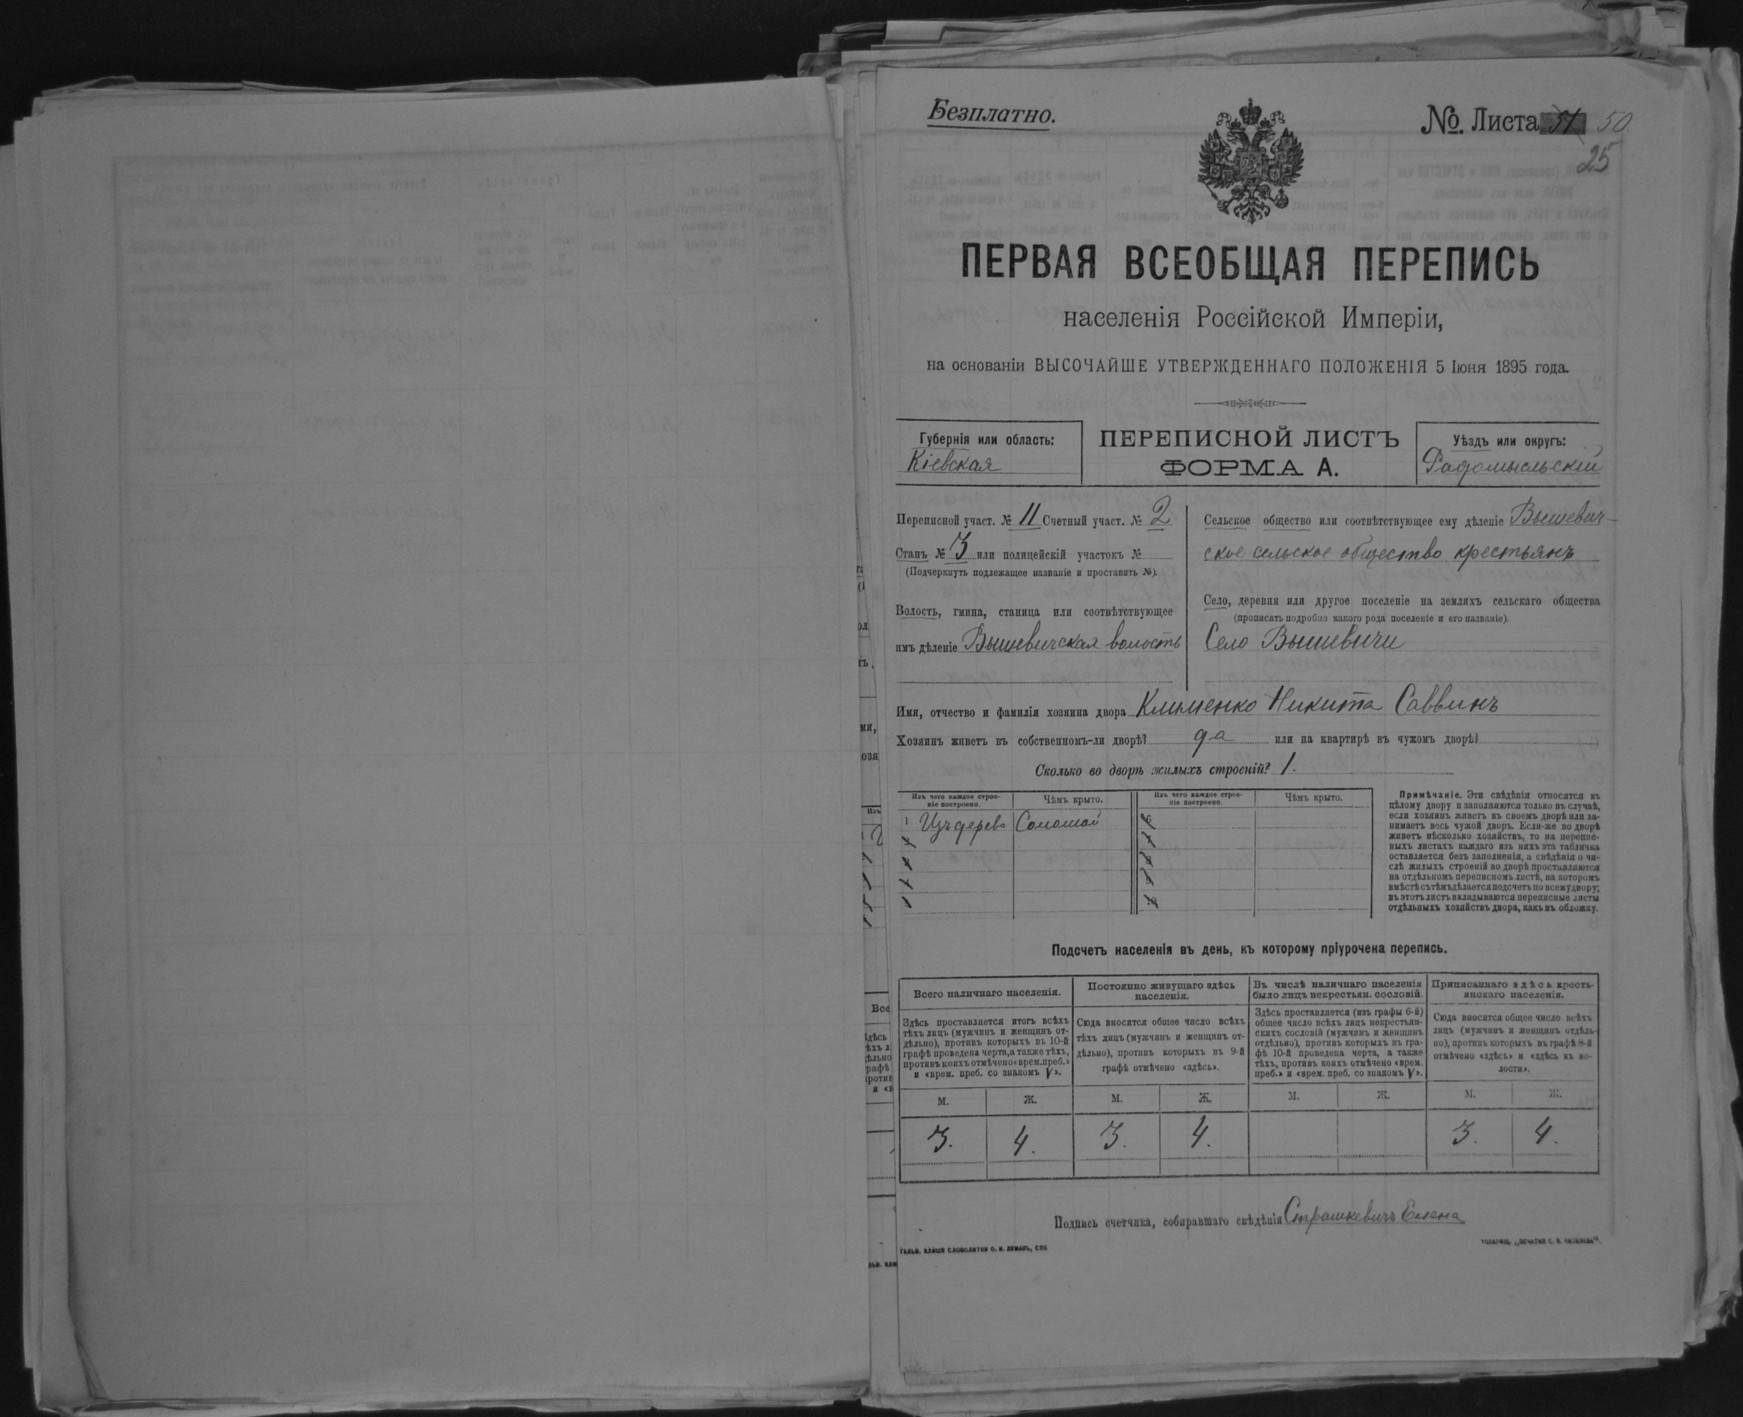 Безплатно.
№. Листа 50
25
ПЕРВАЯ ВСЕОБЩАЯ ПЕРЕПИСЬ
населенія Россійской Имперіи,
на основаніи ВЫСОЧАЙШЕ УТВЕРЖДЕННАГО ПОЛОЖЕНІЯ 5 Іюня 1895 года.
Губернія или область:
Кіевская
ПЕРЕПИСНОЙ ЛИСТЪ
ФОРМА А.
Уѣздъ или округъ:
Радомысльскій
Переписной участ. № 11 Счетный участ. № 2
Станъ № 3 или полицейскій участокъ №
(Подчеркнуть подлежащее названіе и проставить №).
Волость, гмина, станица или соотвѣтствующее
имъ дѣленіе Вышевичская волость
Сельское общество или соотвѣтствующее ему дѣленіе Вышевич-
ское сельское общество крестьянъ
Село, деревня или другое поселеніе на земляхъ сельскаго общества
(прописать подробно какого рода поселеніе и его названіе).
Село Вышевичи
Имя, отчество и фамилія хозяина двора Клименко Никита Саввинъ
Хозяинъ живетъ въ собственномъ-ли дворѣ? да или на квартирѣ въ чужомъ дворѣ?
Сколько во дворѣ жилыхъ строеній? 1.
Изъ чего каждое строе-
ніе построено.
Чѣмъ крыто.
Изъ чего каждое строе-
ніе построено.
Чѣмъ крыто.
1 Изъ дерева Соломой
Примѣчаніе. Эти свѣдѣнія относятся къ
цѣлому двору и заполняются только въ случаѣ,
если хозяинъ живетъ въ своемъ дворѣ или за-
нимаетъ весь чужой дворъ. Если-же во дворѣ
живетъ нѣсколько хозяйствъ, то на перепис-
ныхъ листахъ каждаго изъ нихъ эта табличка
оставляется безъ заполненія, а свѣдѣнія о чи-
слѣ жилыхъ строеній во дворѣ проставляются
на отдѣльномъ переписномъ листѣ, на которомъ
вмѣстѣ съ тѣмъ дѣлается подсчетъ по всему двору;
въ этотъ листъ вкладываются переписные листы
отдѣльныхъ хозяйствъ двора, какъ въ обложку.
Подсчетъ населенія въ день, къ которому пріурочена перепись.
Всего наличнаго населенія.
Здѣсь проставляется итогъ всѣхъ
тѣхъ лицъ (мужчинъ и женщинъ от-
дѣльно), противъ которыхъ въ 10-й
графѣ проведена черта, а также тѣхъ,
противъ коихъ отмѣчено «врем. преб.»
и «врем. преб. со знакомъ V».
Постоянно живущаго здѣсь
населенія.
Сюда вносится общее число всѣхъ
тѣхъ лицъ (мужчинъ и женщинъ от-
дѣльно), противъ которыхъ въ 9-й
графѣ отмѣчено «здѣсь».
Въ числѣ наличнаго населенія
было лицъ некрестьян. сословій.
Здѣсь проставляется (изъ графы 6-й)
общее число всѣхъ лицъ некрестьян-
скихъ сословій (мужчинъ и женщинъ
отдѣльно), противъ которыхъ въ гра-
фѣ 10-й проведена черта, а также
тѣхъ, противъ коихъ отмѣчено «врем.
преб.» и «врем. преб. со знакомъ V».
Приписаннаго здѣсь кресть-
янскаго населенія.
Сюда вносится общее число всѣхъ
лицъ (мужчинъ и женщинъ отдѣль-
но), противъ которыхъ въ графѣ 8-й
отмѣчено «здѣсь» и «здѣсь въ во-
лости».
М. Ж. М. Ж. М. Ж. М. Ж.
3. 4. 3. 4. 3. 4.
Подпись счетчика, собиравшаго свѣдѣнія Страшкевичъ Елена